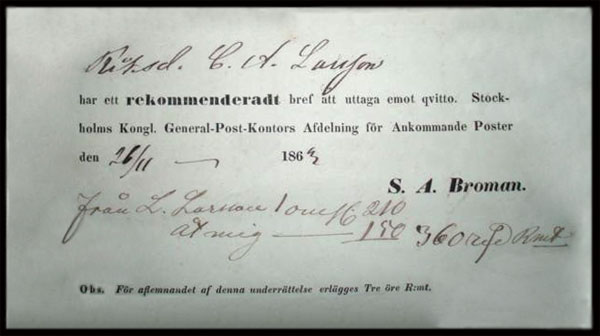 Riksd. C. A. Larsson
har ett rekommenderadt bref att uttaga emot qvitto. Stock-
holms Kongl. General-Post-Kontors Afdelning för Ankommande Poster
den 26/11 — 186
S. A. Broman.
från L. Larsson 1 210
at mig — 150 360 Rmt
Obs. För aflemnandet af denna underrättelse erlägges Tre öre R:mt.